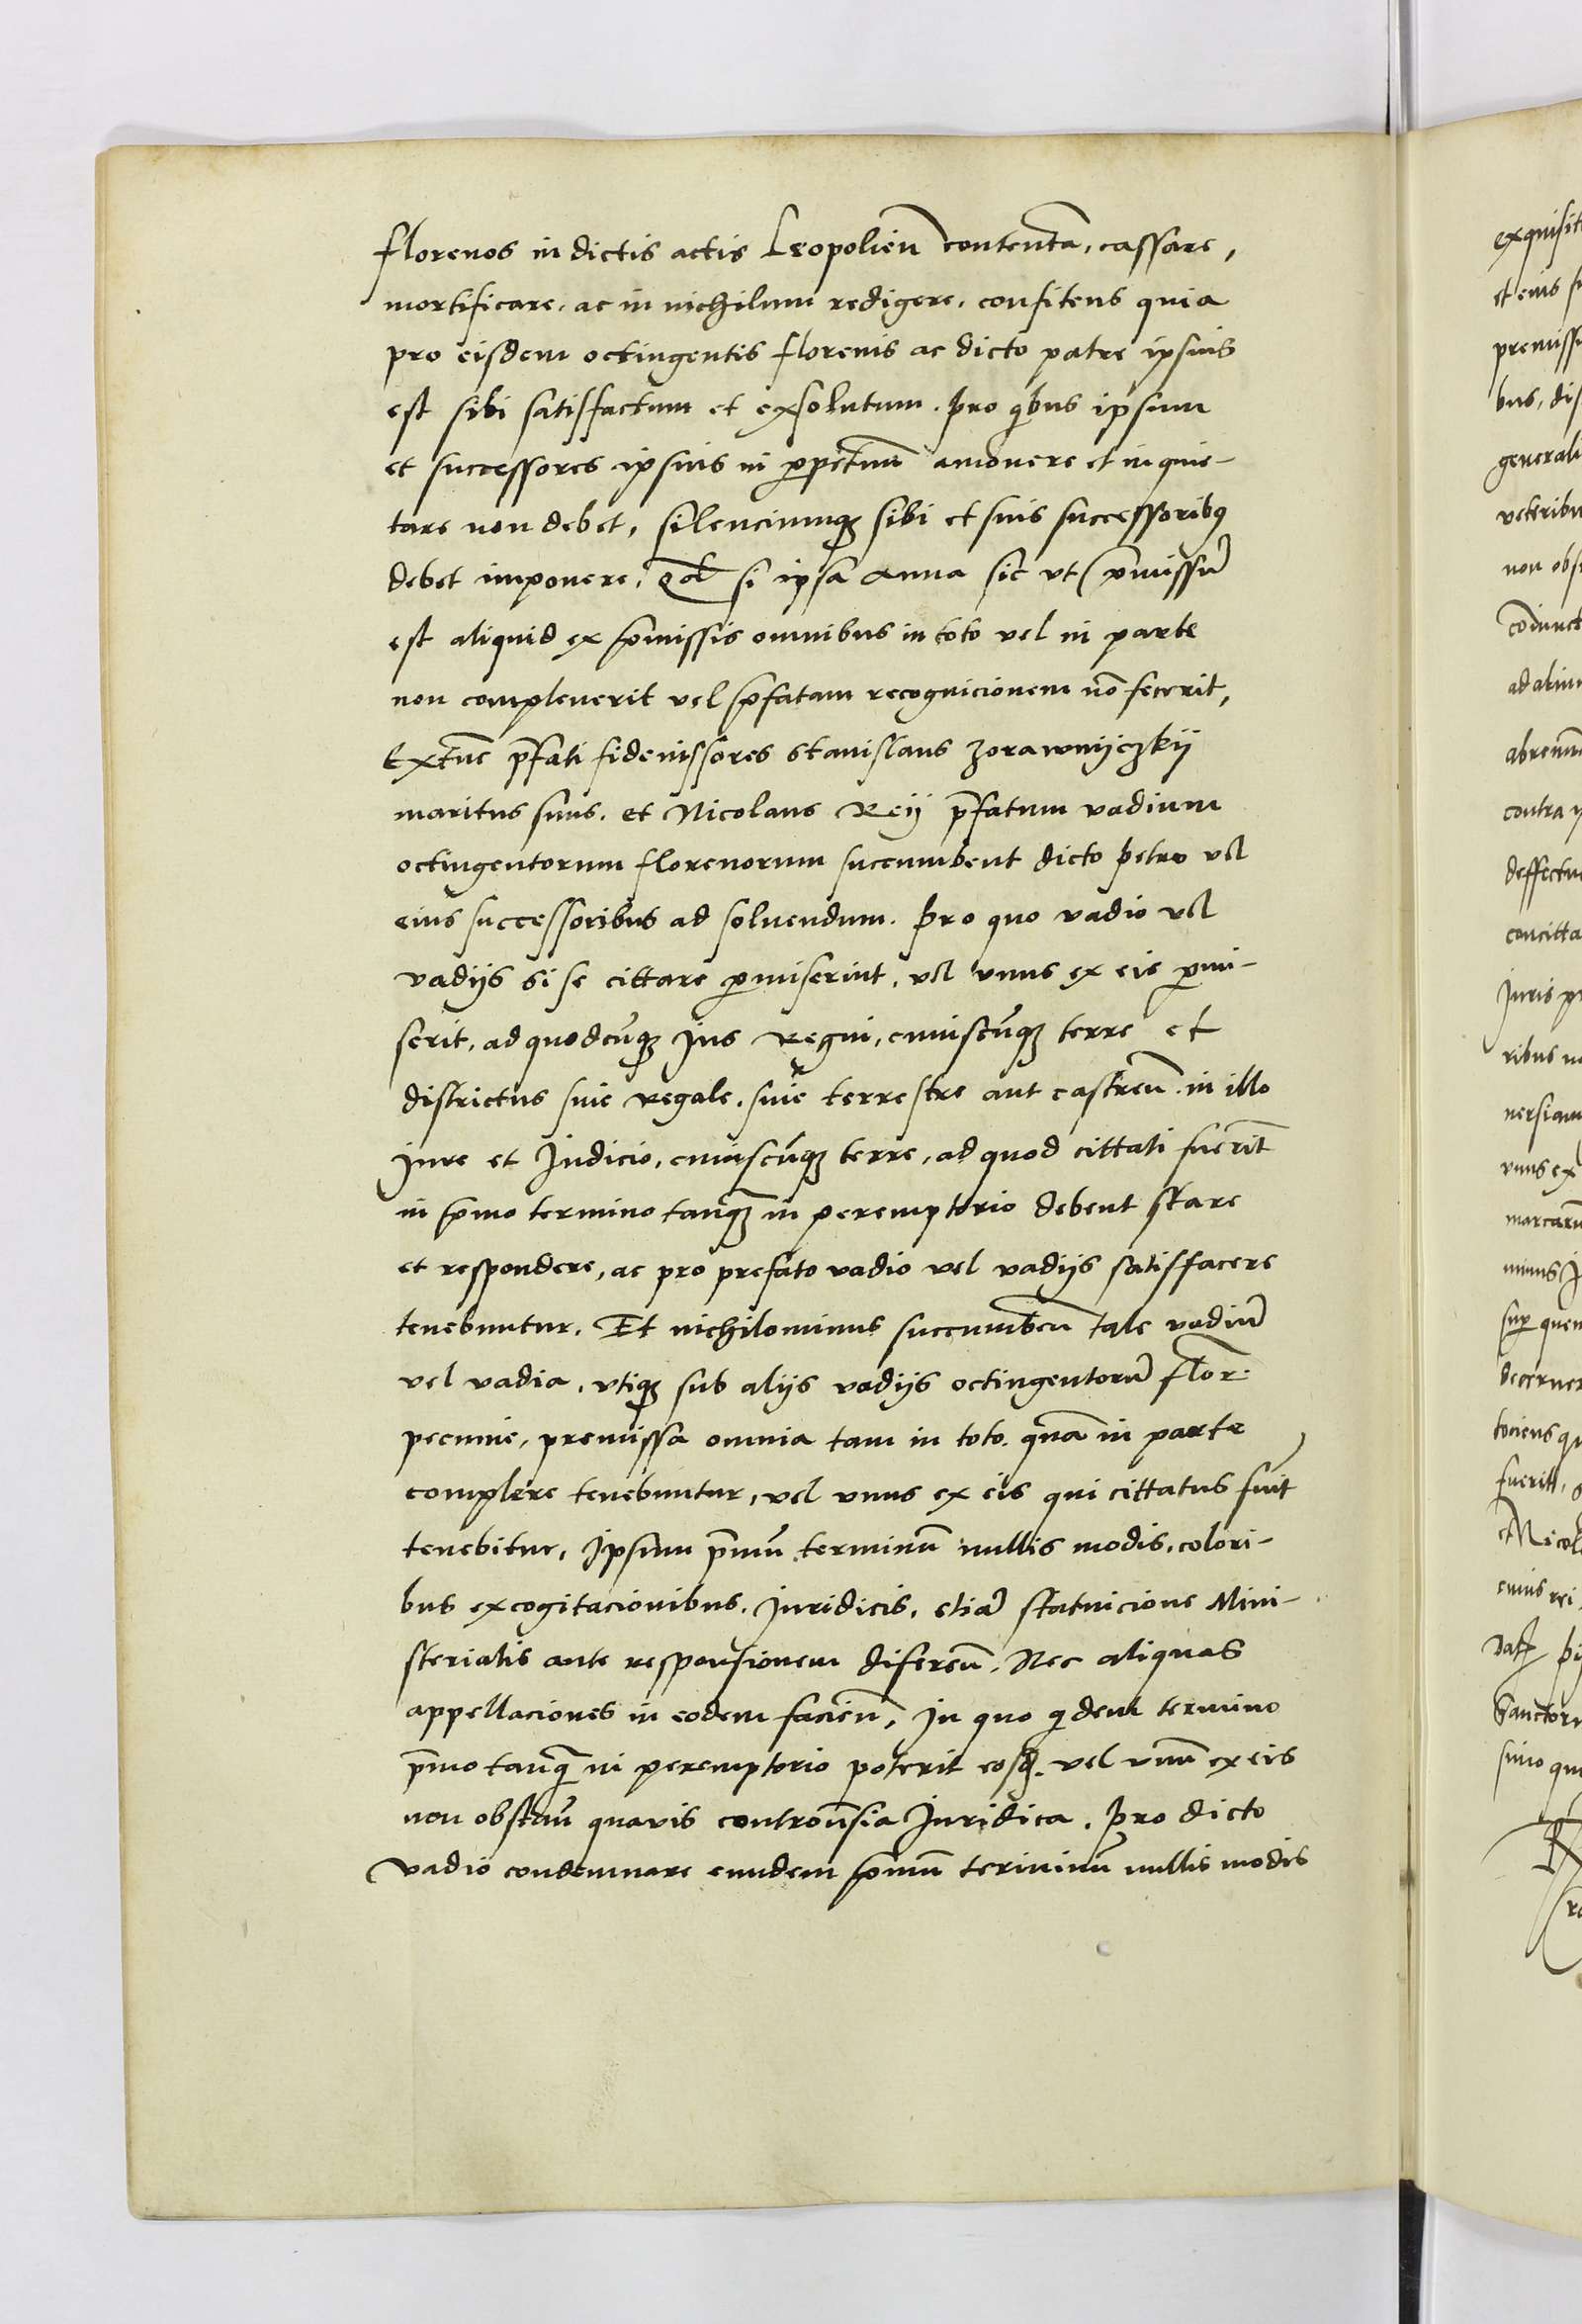 florenos in dictis actis Leopolien̄ contenta, cassare,
mortificare, ac in nichilum redigere, confitens quia
pro eisdem octingentis florenis ac dicto patre ipsius
est sibi satisfactum et exsolutum. pro qibus ipsum
et successores ipsius in ꝑpetuum amonere et inquie-
tare non debet, silenciumqꝫ sibi et suis successoribꝯ
debet imponere. Qd̄ si ipsa Anna sic ut p̄missum̄
est aliquid ex p̄missis omnibus in toto vel in parte
non compleuerit vel p̄fatam recognicionem nō fecerit,
Extūc p̄fati fideiussores Stanislaus Zorawnijczkij
maritus suus, et Nicolaus Reij p̄fatum vadium
octingentorum florenorum succumbent dicto petro vl̄
eius successoribus ad soluendum. Pro quo vadio vl̄
vadijs si se cittare ꝑmiserint, vl̄ vnus ex eis ꝑmi-
serit, ad quodcūqꝫ Jus Regni, cuiuscūqꝫ terre et
districtus siue Regale, siue terrestre aut castren̄. in illo
Jure et Judicio, cuiuscūqꝫ terre, ad quod cittati fuerīt
in p̄mo termino tanqꝫ in peremptorio debent stare
et respondere, ac pro prefato vadio vel vadijs satisfacere
tenebuntur. Et nichilominus succumben̄ tale vadiū
vel vadia, vtiqꝫ sub alijs vadijs octingentorū flor:
pecunie, premissa omnia tam in toto quā in parte
complere tenebuntur, vel vnus ex eis qui cittatus fuit
tenebitur, Ipsum p̄mū terminū nullis modis, colori-
bus excogitacionibus, Juridicis, etiā statuicione Mini-
sterialis ante responsionem diferen̄. Nec aliquas
appellaciones in eodem facien̄, in quo qidem termino
p̄mo tanqꝫ in peremptorio poterit eosd. vel vnū ex eis
non obstan̄ quavis controuersia Juridica. pro dicto
vadio condemnare eundem p̄mū terminū nullis modis